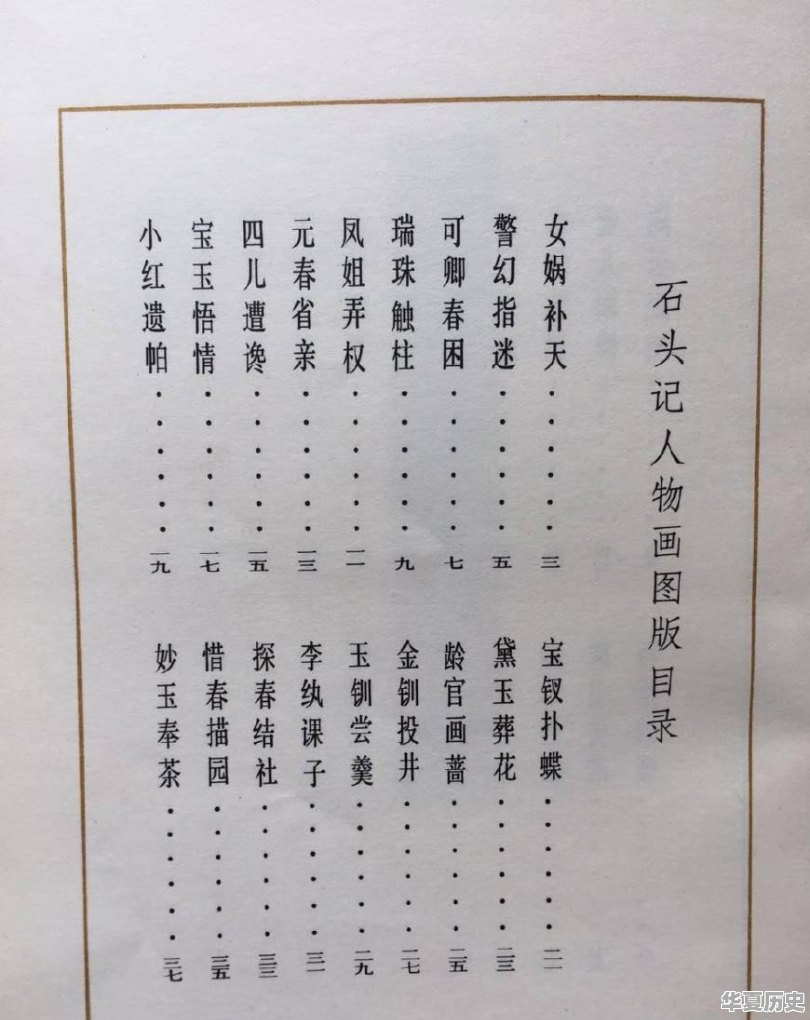 石头记人物画图版目录
女娲补天······三
警幻指迷······五
可卿春困······七
瑞珠触柱······九
凤姐弄权······一一
元春省亲······一三
四儿遭谗······一五
宝玉悟情······一七
小红遗帕······一九
宝钗扑蝶······二一
黛玉葬花······二三
龄官画蔷······二五
金钏投井······二七
玉钏尝羹······二九
李纨课子······三一
探春结社······三三
惜春描园······三五
妙玉奉茶······三七
华夏历史